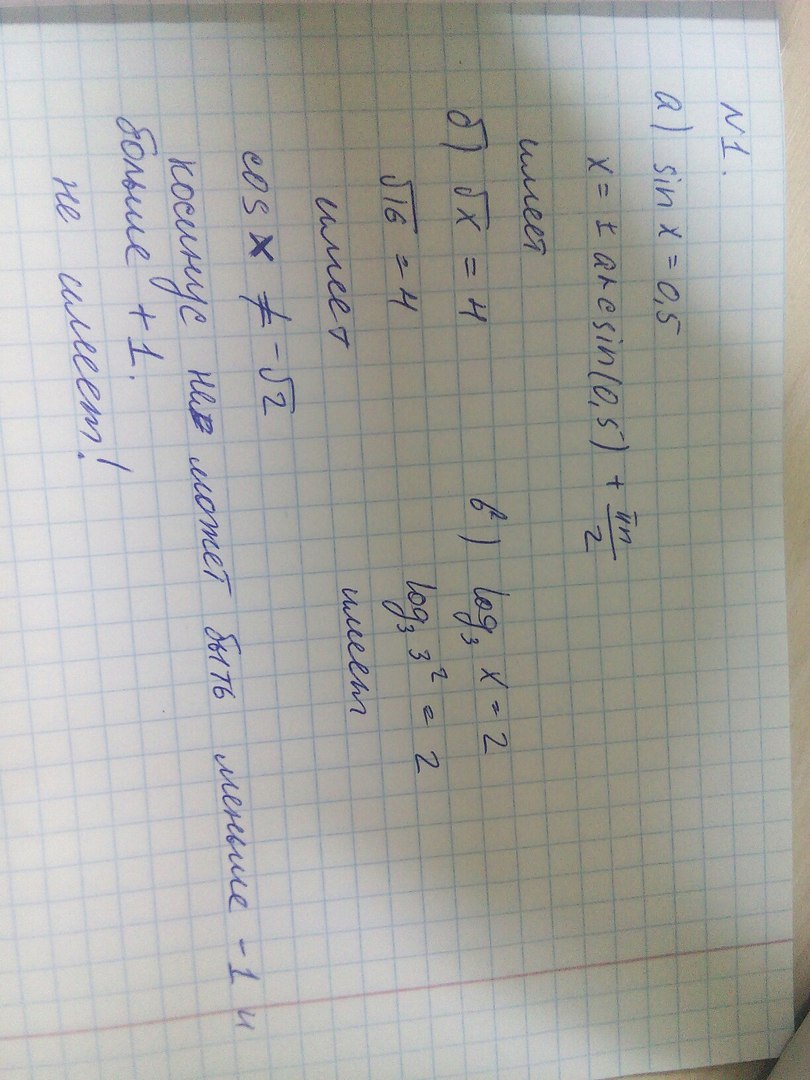 N1.
а) sin x = 0,5
x = ± arcsin(0,5) + πn/2
имеет
б) √x = 4
√16 = 4
имеет
в) log₃ x = 2
log₃ 3² = 2
имеет
cos x ≠ -√2
косинус не может быть меньше -1 и
больше +1.
не имеет!